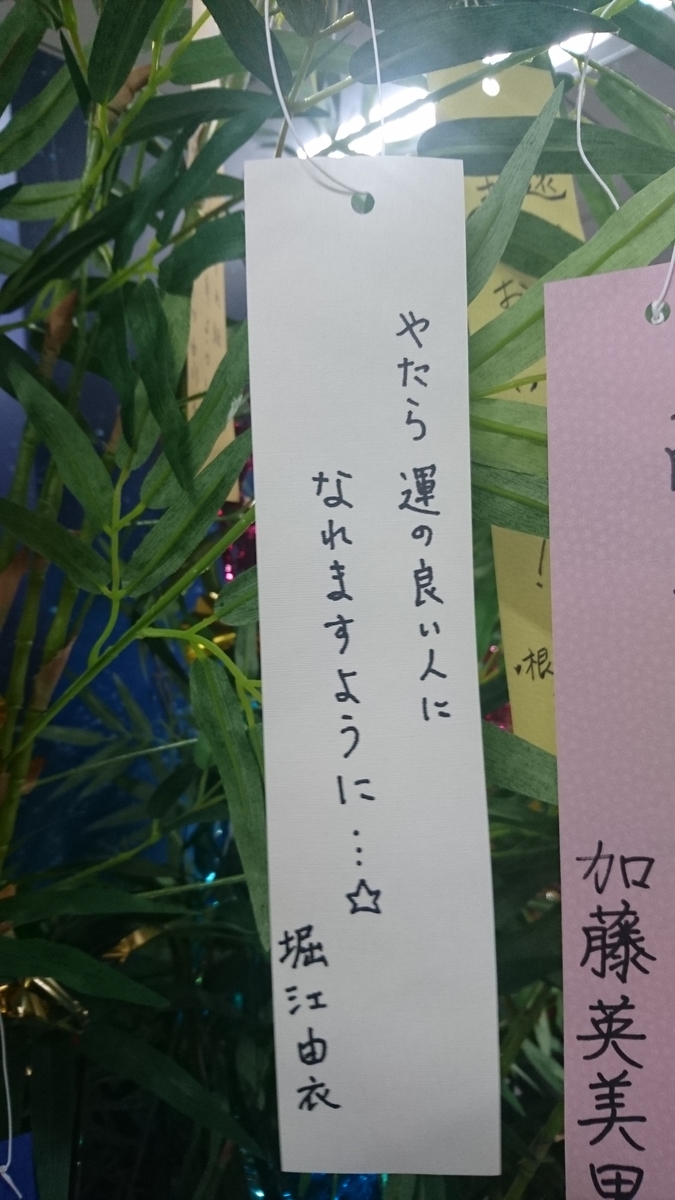 やたら 運の良い人に
なれますように…☆
堀江由衣
加藤英美里
！
根